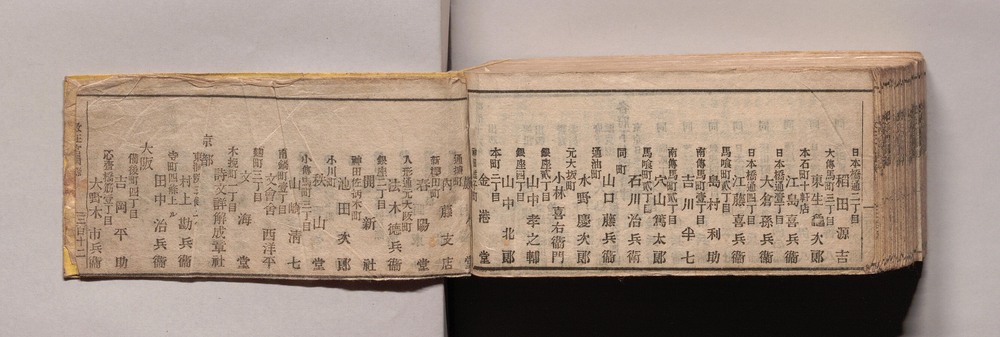 日本橋通二丁目
稻田源吉
大傳馬町三丁目
東生龜次郎
本石町十軒店
江島喜兵衞
日本橋通一丁目
大倉孫兵衞
日本橋通三丁目
江藤喜兵衞
馬喰町二丁目
島村利助
南傳馬町一丁目
吉川半七
馬喰町貳丁目
穴山篤太郎
南傳馬町壹丁目
石川治兵衞
同町
山口藤兵衞
通油町
水野慶次郎
元大坂町
小林喜右衞門
銀座貳丁目
山中孝之輔
銀座四丁目
山中北郎
本町三丁目
金港堂
内藤支店
春陽堂
人形通元大阪町
法木德兵衞
銀座二丁目
開新社
神田佐柄木町
池田次郎
小川町
秋山堂
嶋清七
南鍋町壹丁目
文會舍 西洋平
麴町三丁目
文海堂
木挽町一丁目
詩文詳解成章社
京都
村上勘兵衞
田中治兵衞
大阪
備後町四丁目
吉岡平助
心齋橋筋壹丁目
大野木市兵衞
三百十二